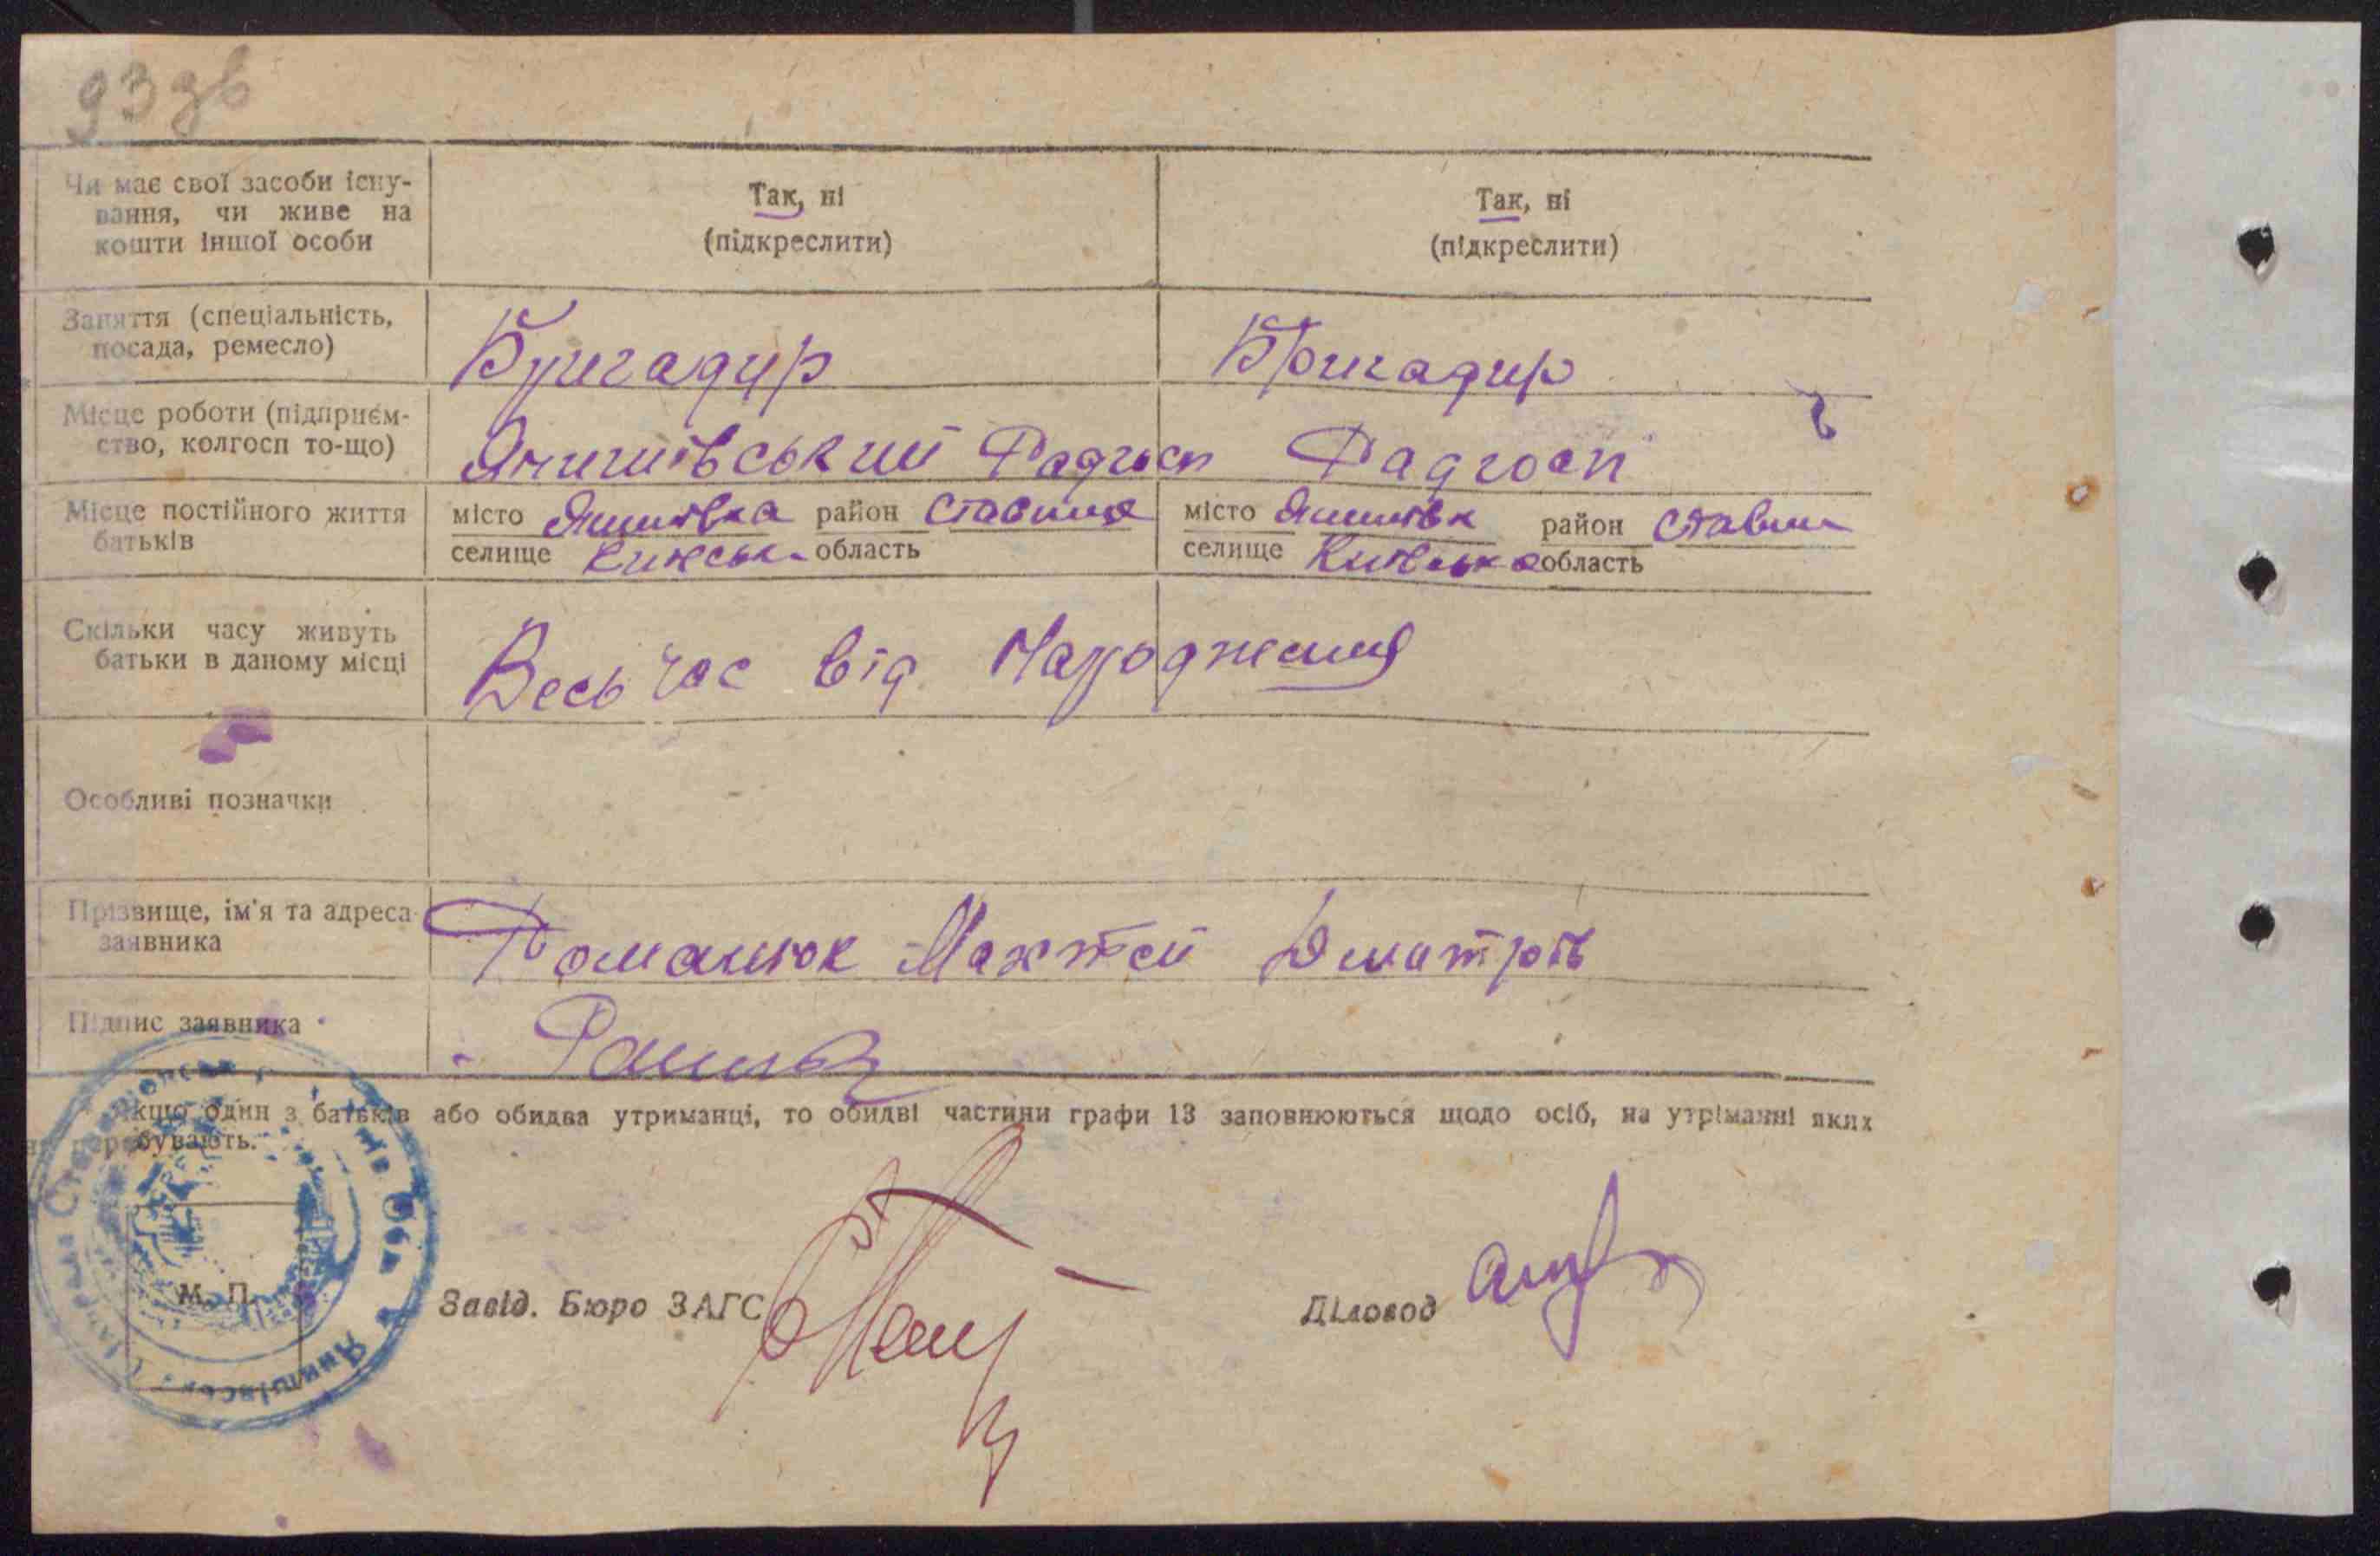 93 зв
Чи має свої засоби існу-
вання, чи живе на
кошти іншої особи
Так, ні
(підкреслити)
Так, ні
(підкреслити)
Заняття (спеціальність,
посада, ремесло)
Бригадир
Бригадир
Місце роботи (підприєм-
ство, колгосп то-що)
Янишівський Радгосп
Радгосп
Місце постійного життя
батьків
місто Янишівка район Ставище
селище область
місто район Ставищ
селище Київська область
Скільки часу живуть
батьки в даному місці
Весь час від Народження
Особливі позначки
Прізвище, ім'я та адреса
заявника
Романюк Дмитрів
Підпис заявника
Якщо один з батьків або обидва утриманці, то обидві частини графи 13 заповнюються щодо осіб, на утріманні яких
перебувають.
М. П.
Завід. Бюро ЗАГС
Діловод